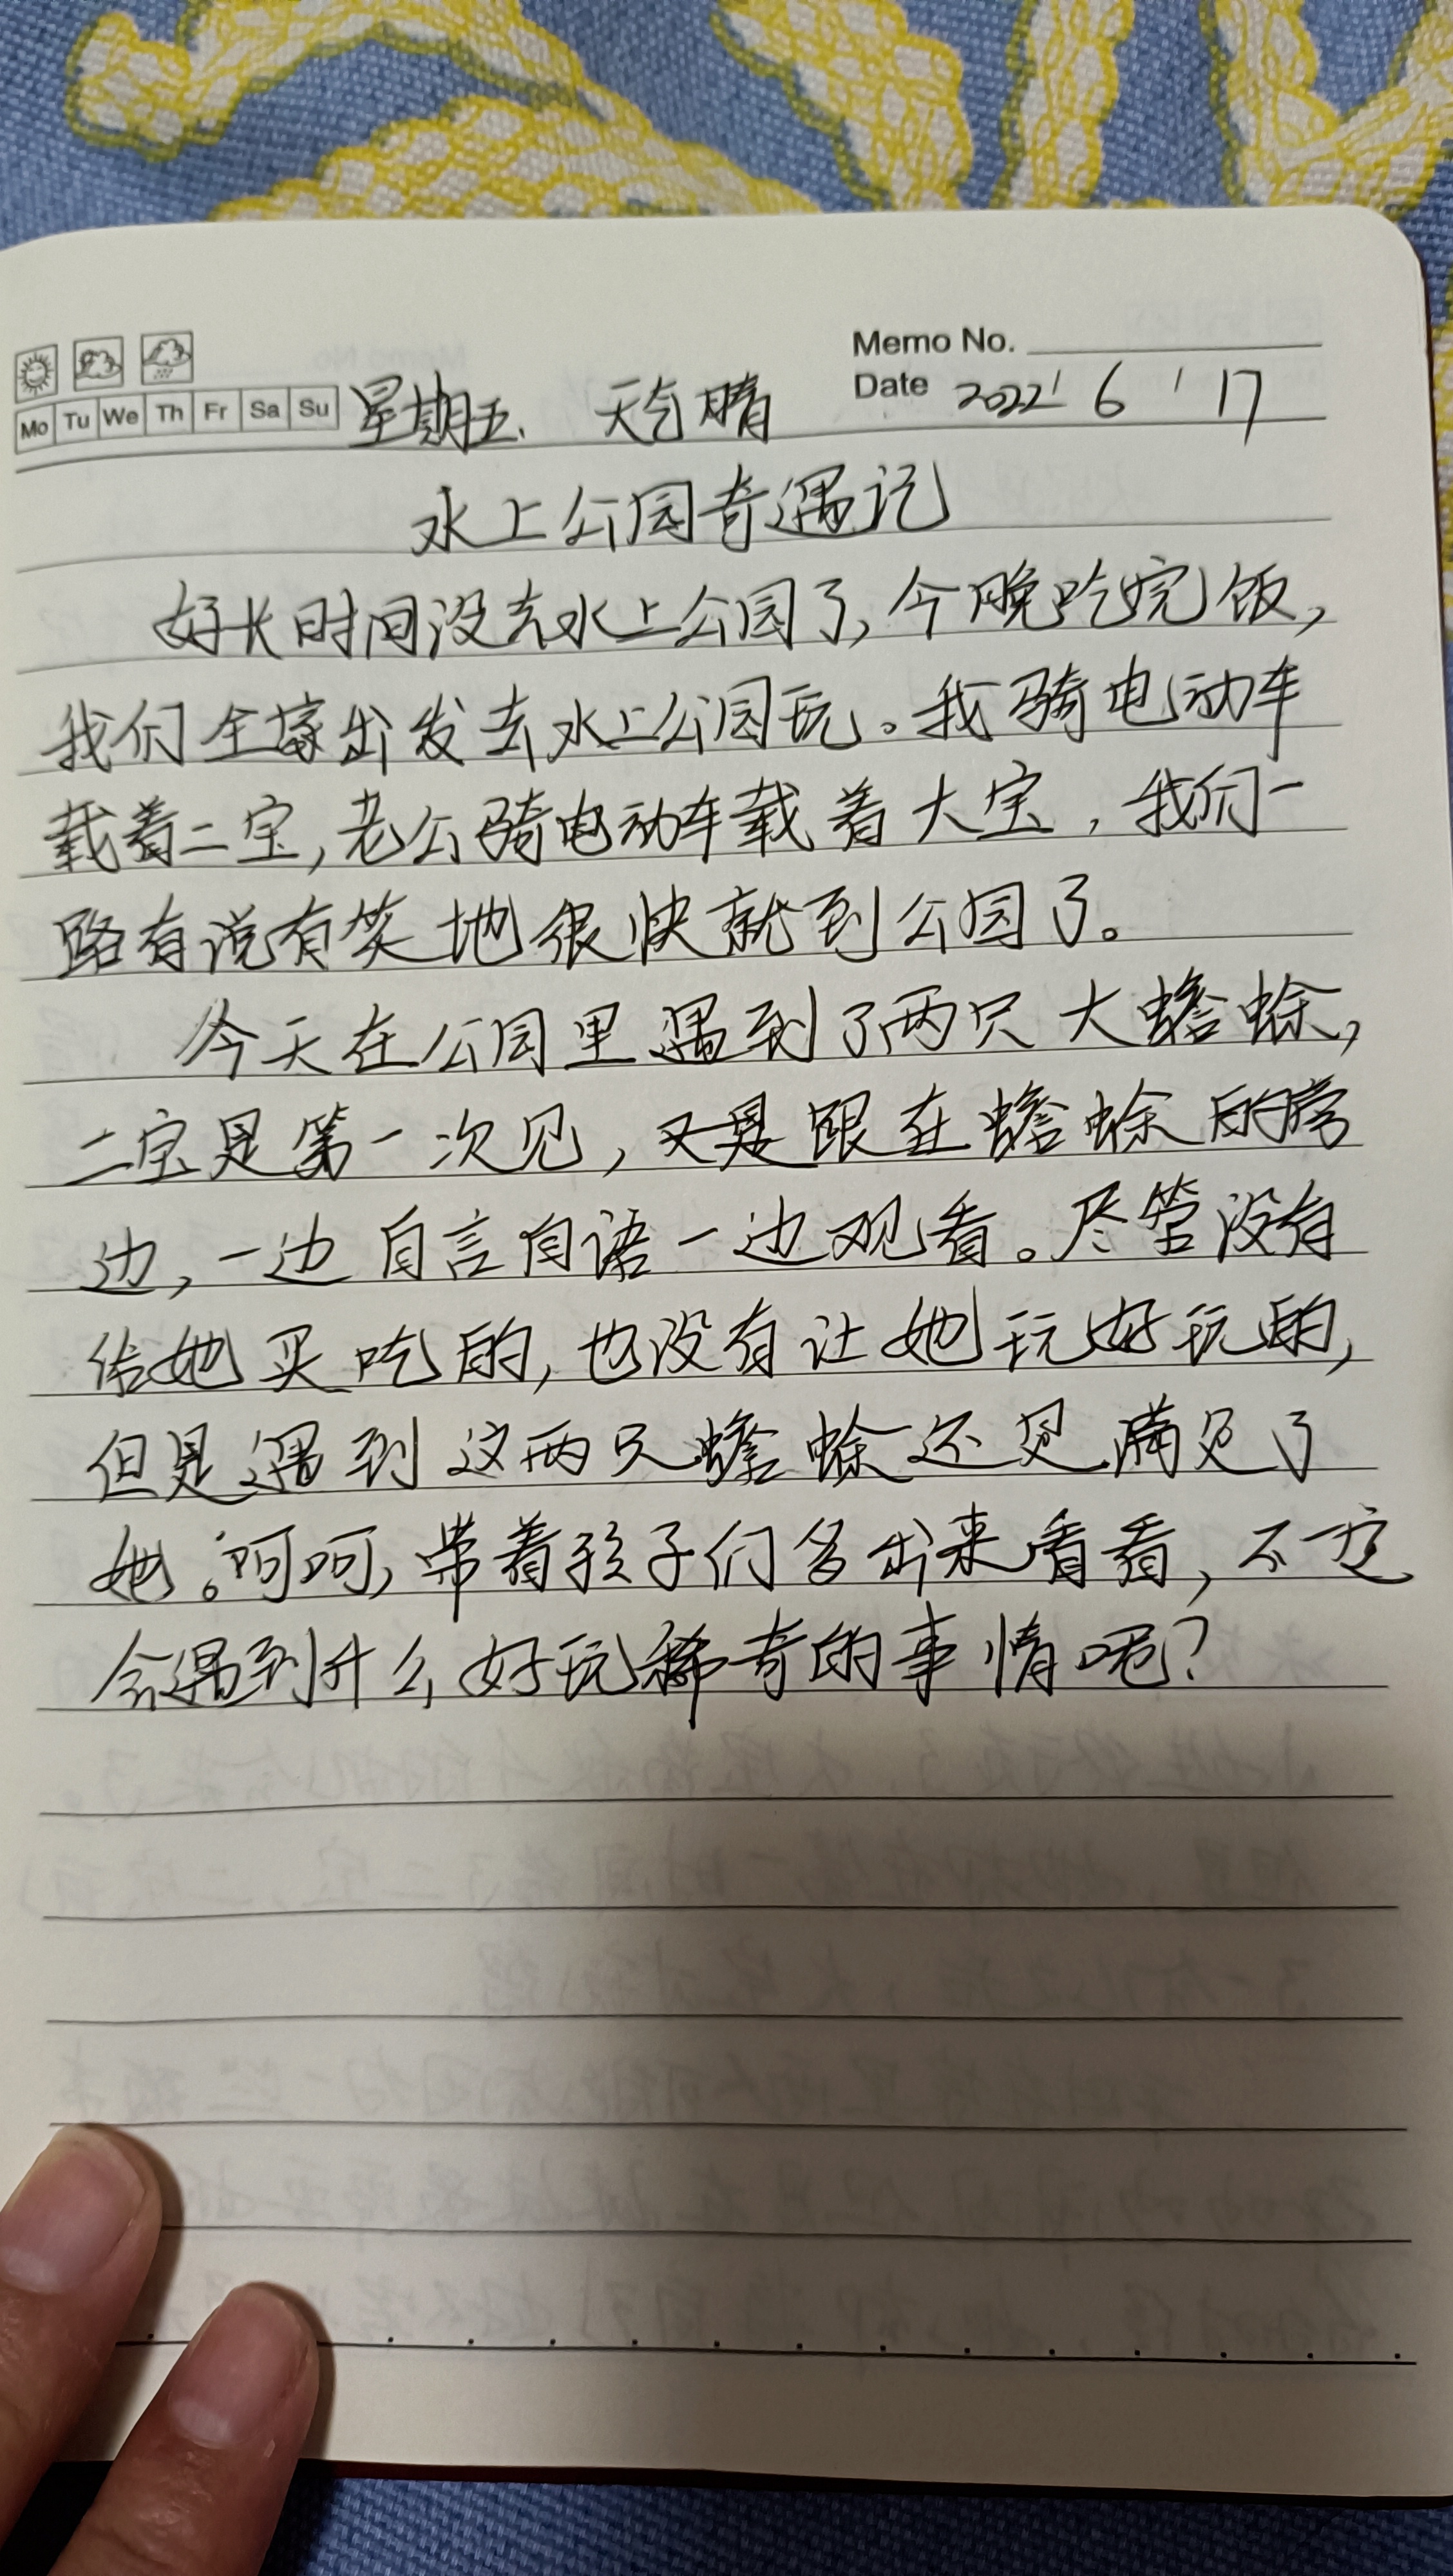 Memo No.
Mo Tu We Th Fr Sa Su 星期五、 天气晴 Date 2022 / 6 / 17
水上公园奇遇记
好长时间没去水上公园了,今晚吃完饭,
我们全家出发去水上公园玩。我骑电动车
载着二宝,老公骑电动车载着大宝,我们一
路有说有笑地很快就到公园了。
今天在公园里遇到了两只大蟾蜍,
二宝是第一次见,又是跟在蟾蜍的旁
边,一边自言自语一边观看。尽管没有
给她买吃的,也没有让她玩好玩的,
但是遇到这两只蟾蜍还是满足了
她。呵呵,带着孩子们多出来看看,不一定
会遇到什么好玩稀奇的事情呢?